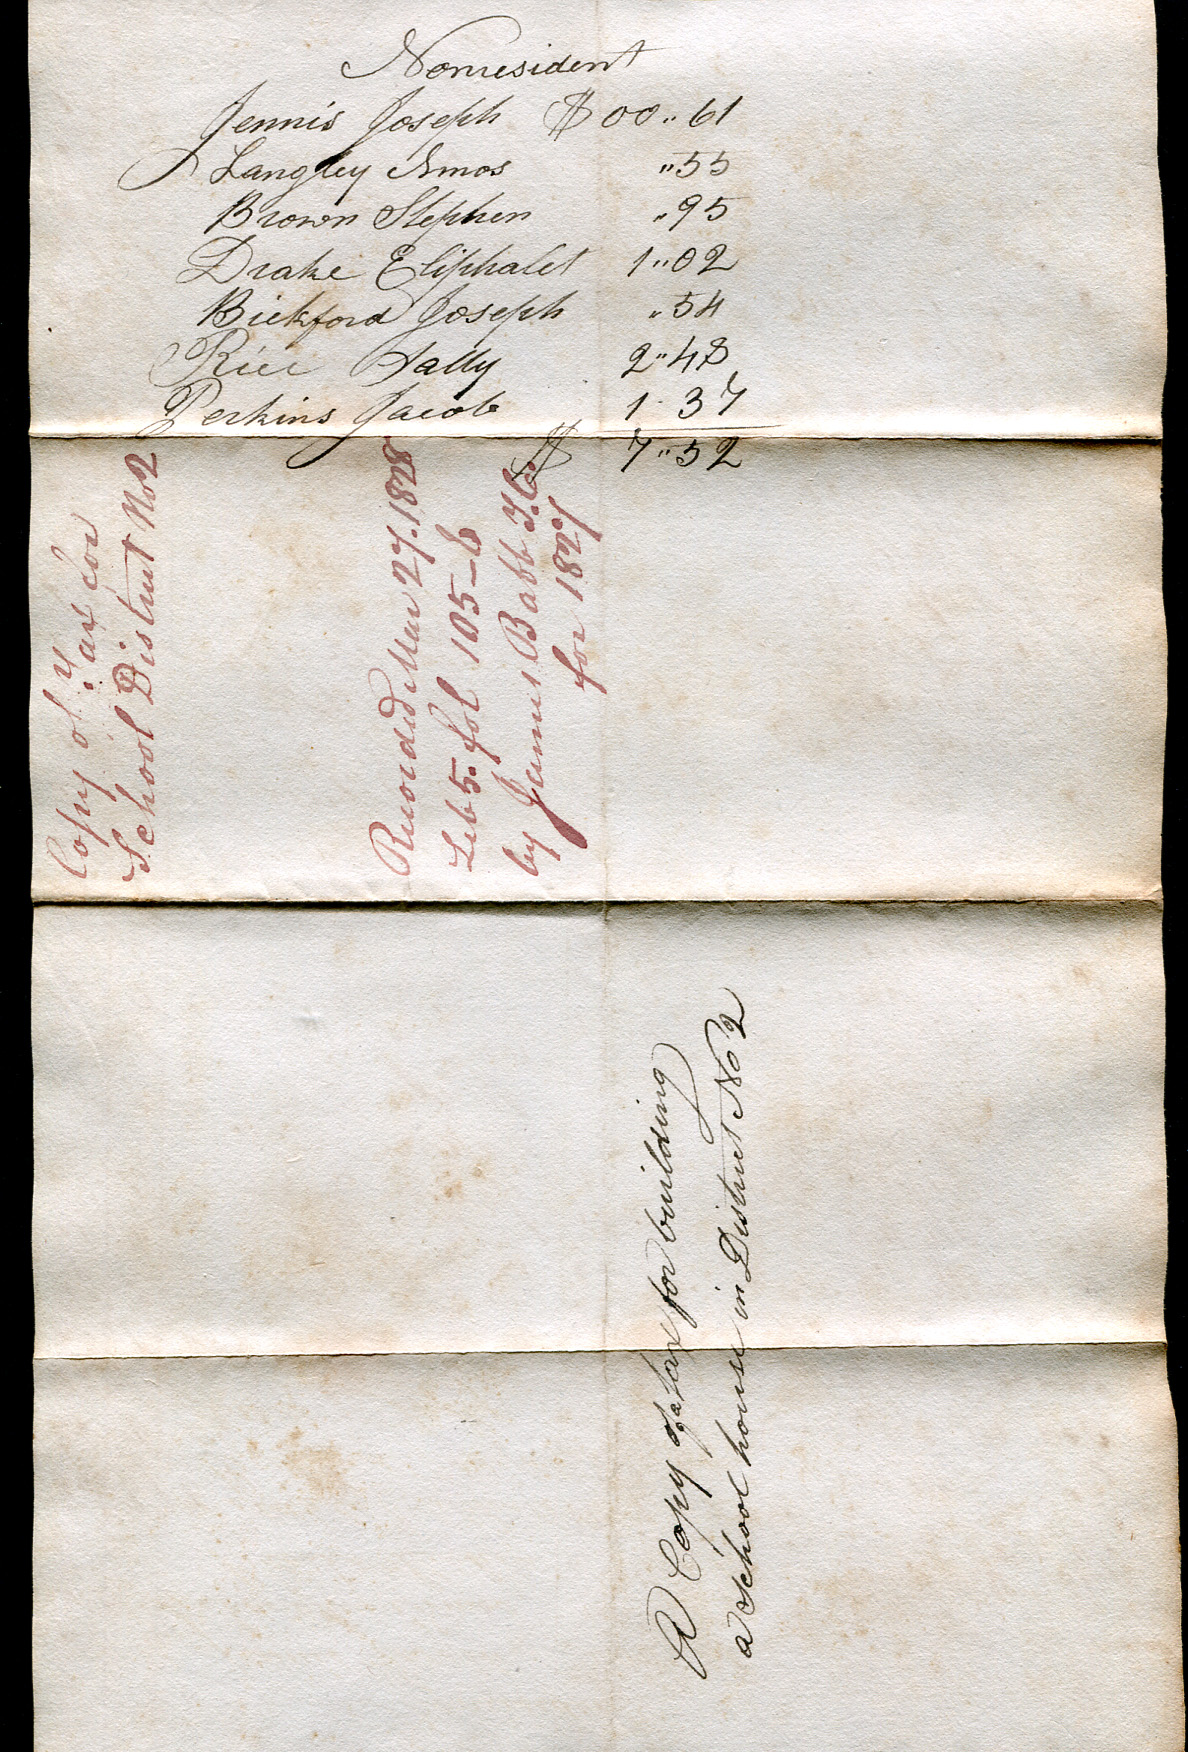 Nonresident
Jennis Joseph $ 00 ,, 61
Langley Amos ,, 55
Brown Stephen ,, 95
Drake Eliphalet 1 ,, 02
Bickford Joseph ,, 54
Rice Sally 2 ,, 48
Perkins Jacob 1 - 37
$ 7 ,, 52
Copy of Tax for
School District No 2
Recorded Mar 27. 1828
Lib 5. fol 105-6
by James Babb T.C.
for 1827
A Copy of a tax for building
a school house in District No 2